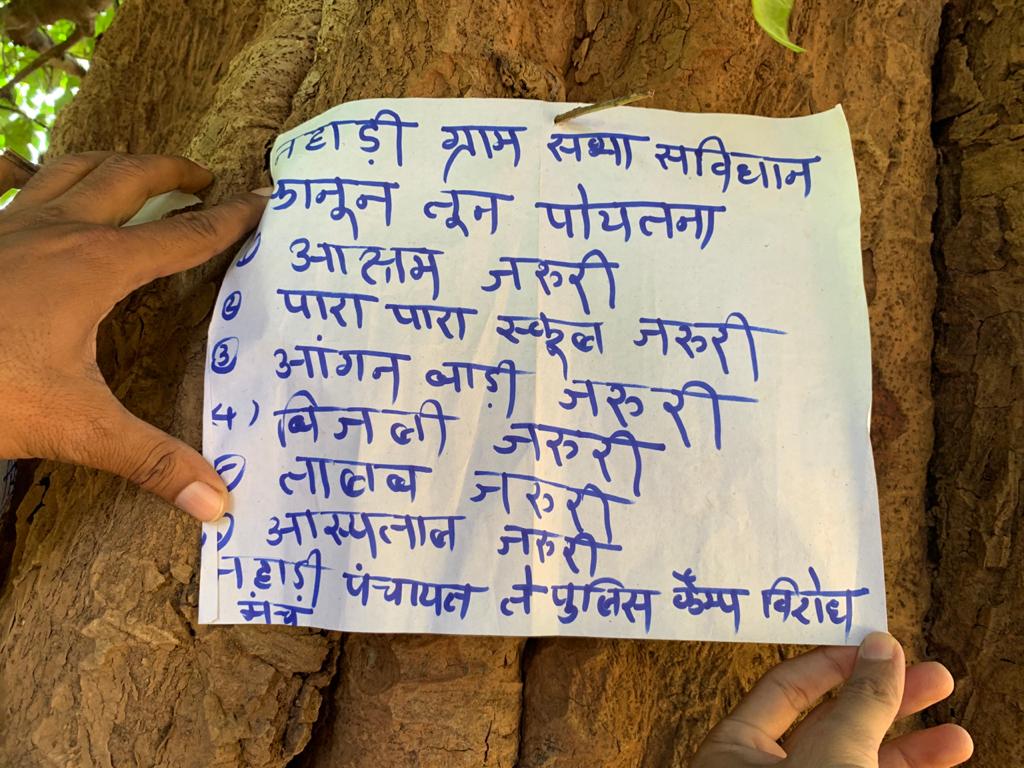 नहाड़ी ग्राम सभा सविधान
कानून लून पोयतना
1) आस्रम जरुरी
② पारा पारा स्कूल जरुरी
③ आंगन बाड़ी जरुरी
4) बिजली जरुरी
⑤ तालब जरुरी
) आस्पताल जरुरी
नहाड़ी पंचायत ते पुलिस कैम्प विरोध
मंच